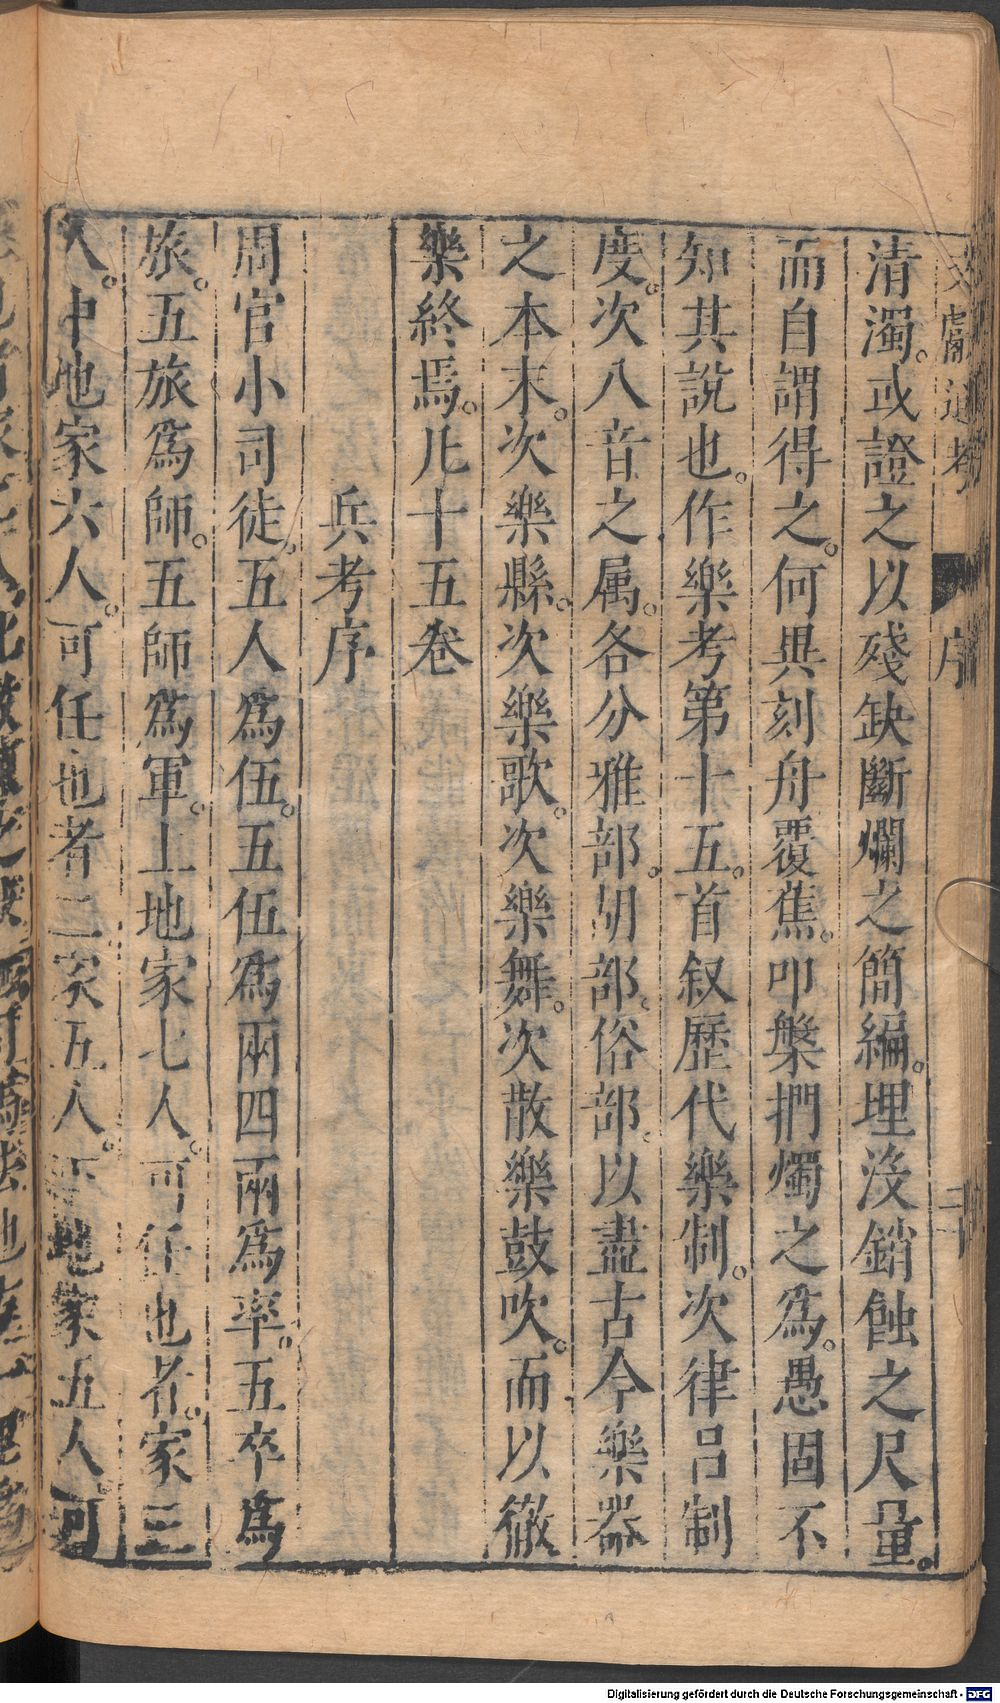 文獻通考 序 二十
清濁。或證之以殘缺斷爛之簡編。埋没銷蝕之尺量。
而自謂得之。何異刻舟覆蕉。叩槃捫燭之爲。愚固不
知其說也。作樂考第十五。首叙歷代樂制。次律呂制
度。次八音之属。各分雅部。胡部。俗部。以盡古今樂器
之本末。次樂縣。次樂歌。次樂舞。次散樂鼓吹。而以徹
樂終焉。凡十五卷
兵考序
周官小司徒。五人爲伍。五伍爲兩四兩爲卒。五卒爲
旅。五旅爲師。五師爲軍。上地家七人。可任也者。家三
人。中地家六人。可任也者二家五人。下地家五人可
Digitalisierung gefördert durch die Deutsche Forschungsgemeinschaft - DFG